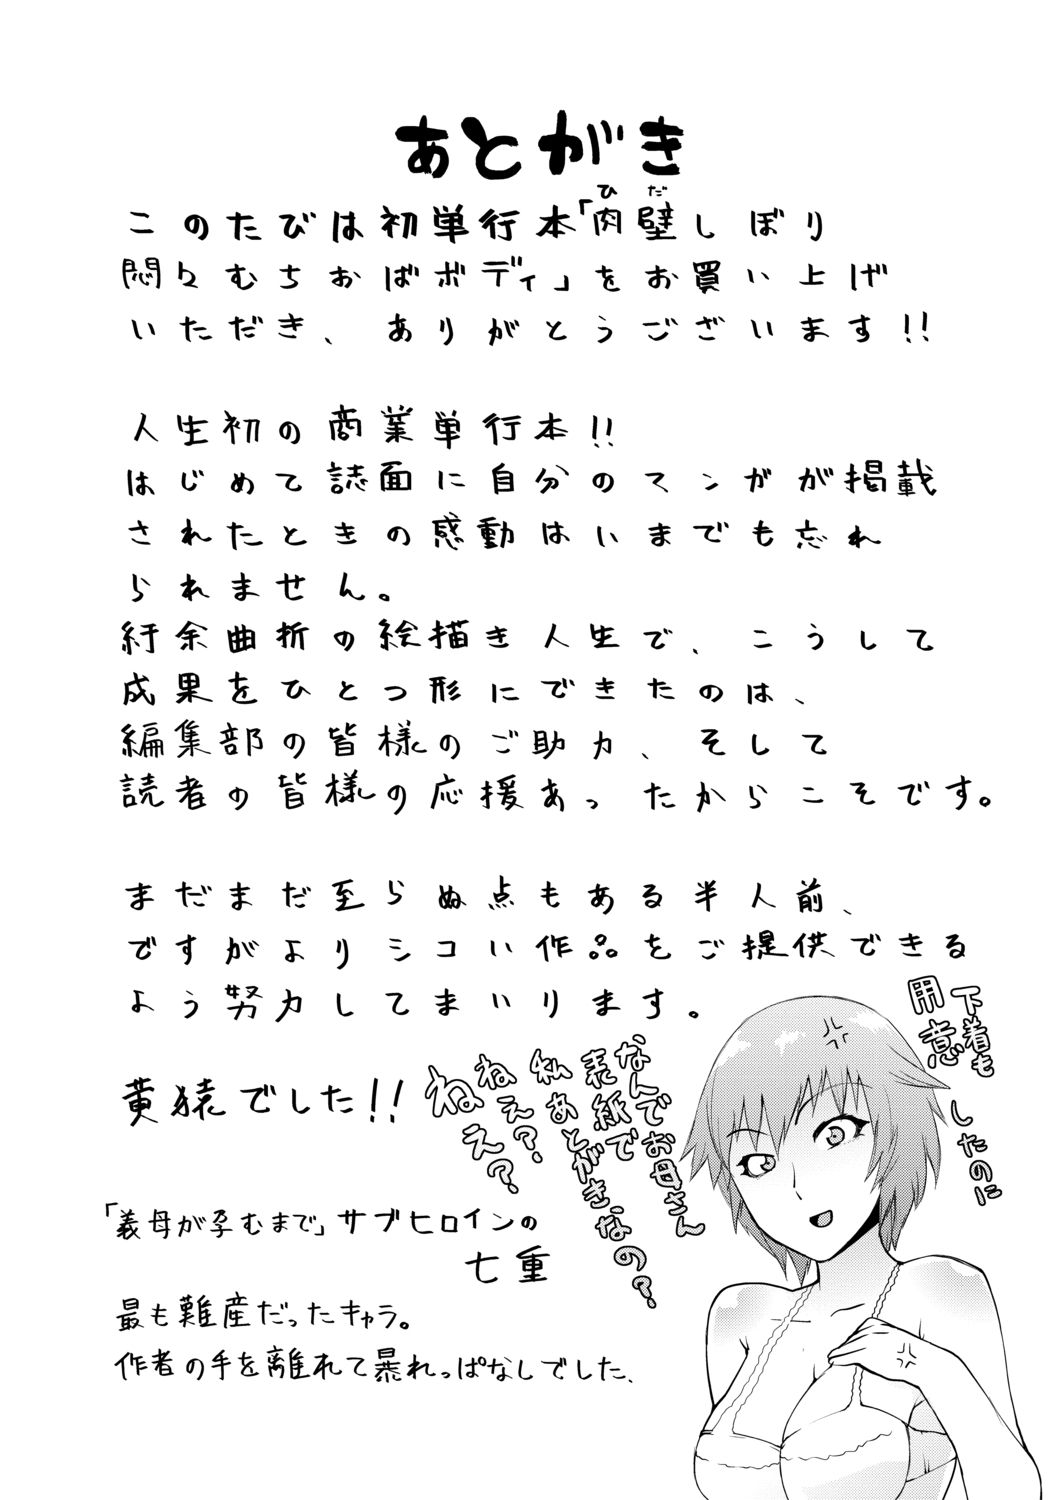 あとがき
このたびは初単行本「肉壁しぼり
ひだ
悶々むちおばボディ」をお買い上げ
いただき、ありがとうございます!!
人生初の商業単行本!!
はじめて誌面に自分のマンガが掲載
されたときの感動はいまでも忘れ
られません。
紆余曲折の絵描き人生で、こうして
成果をひとつ形にできたのは、
編集部の皆様のご助力、そして
読者の皆様の応援あったからこそです。
まだまだ至らぬ点もある半人前、
ですがよりシコい作品をご提供できる
よう努力してまいります。
黄猿でした!!
「義母が孕むまで」サブヒロインの
七重
最も難産だったキャラ。
作者の手を離れて暴れっぱなしでした、
下着も
用意
したのに
なんでお母さん
表紙で
私あとがきなの?
ねぇ?
ねぇ?
ねぇ?